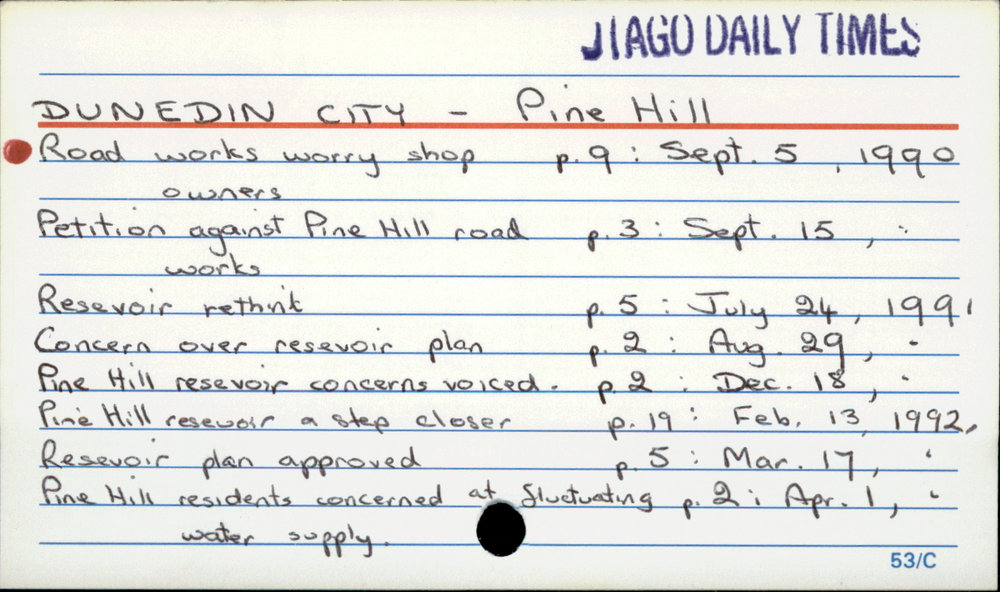 JIAGO DAILY TIMES
DUNEDIN CITY - Pine Hill
Road works worry shop p. 9 : Sept. 5 , 1990
owners
Petition against Pine Hill road p. 3 : Sept. 15 , "
works
Resevoir rethink p. 5 : July 24, 1991
Concern over resevoir plan p. 2 : Aug. 29, "
Pine Hill resevoir concerns voiced. p 2 : Dec. 18, "
Pine Hill resevoir a step closer p. 19 : Feb. 13, 1992,
Resevoir plan approved p. 5 : Mar. 17, "
Pine Hill residents concerned at fluctuating p. 2 : Apr. 1, "
water supply.
53/C